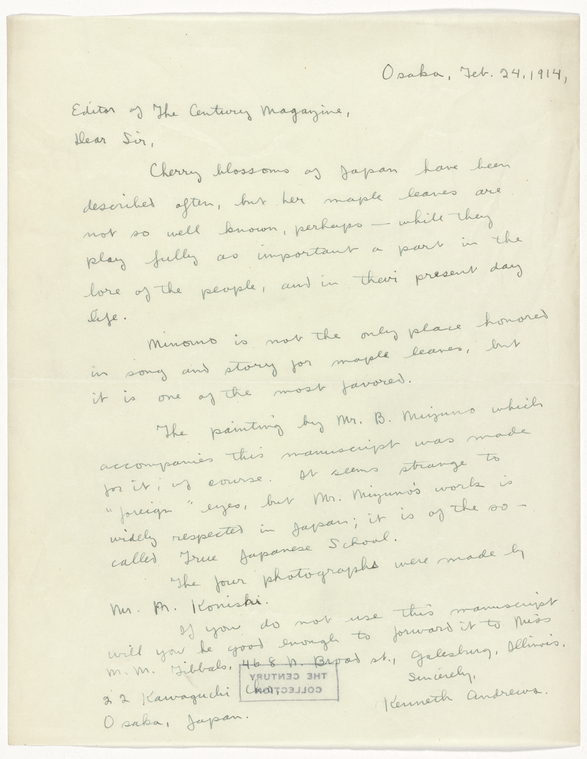 Osaka, Feb. 24, 1914,
Editor of The Century Magazine,
Dear Sir,
Cherry blossoms of Japan have been
described often, but her maple leaves are
not so well known, perhaps — while they
play fully as important a part in the
lore of the people, and in their present day
life.
Minomo is not the only place honored
in song and story for maple leaves, but
it is one of the most favored.
The painting by Mr. B. Mizuno which
accompanies this manuscript was made
for it, of course. It seems strange to
"foreign" eyes, but Mr. Mizuno's work is
widely respected in Japan; it is of the so-
called True Japanese School.
The four photographs were made by
Mr. M. Konishi.
If you do not use this manuscript
will you be good enough to forward it to Miss
M. M. Tibbals, 468 N. Broad st., Galesburg, Illinois.
Sincerely,
Kenneth Andrews.
22 Kawaguchi Cho,
Osaka, Japan.
THE CENTURY
COLLECTION